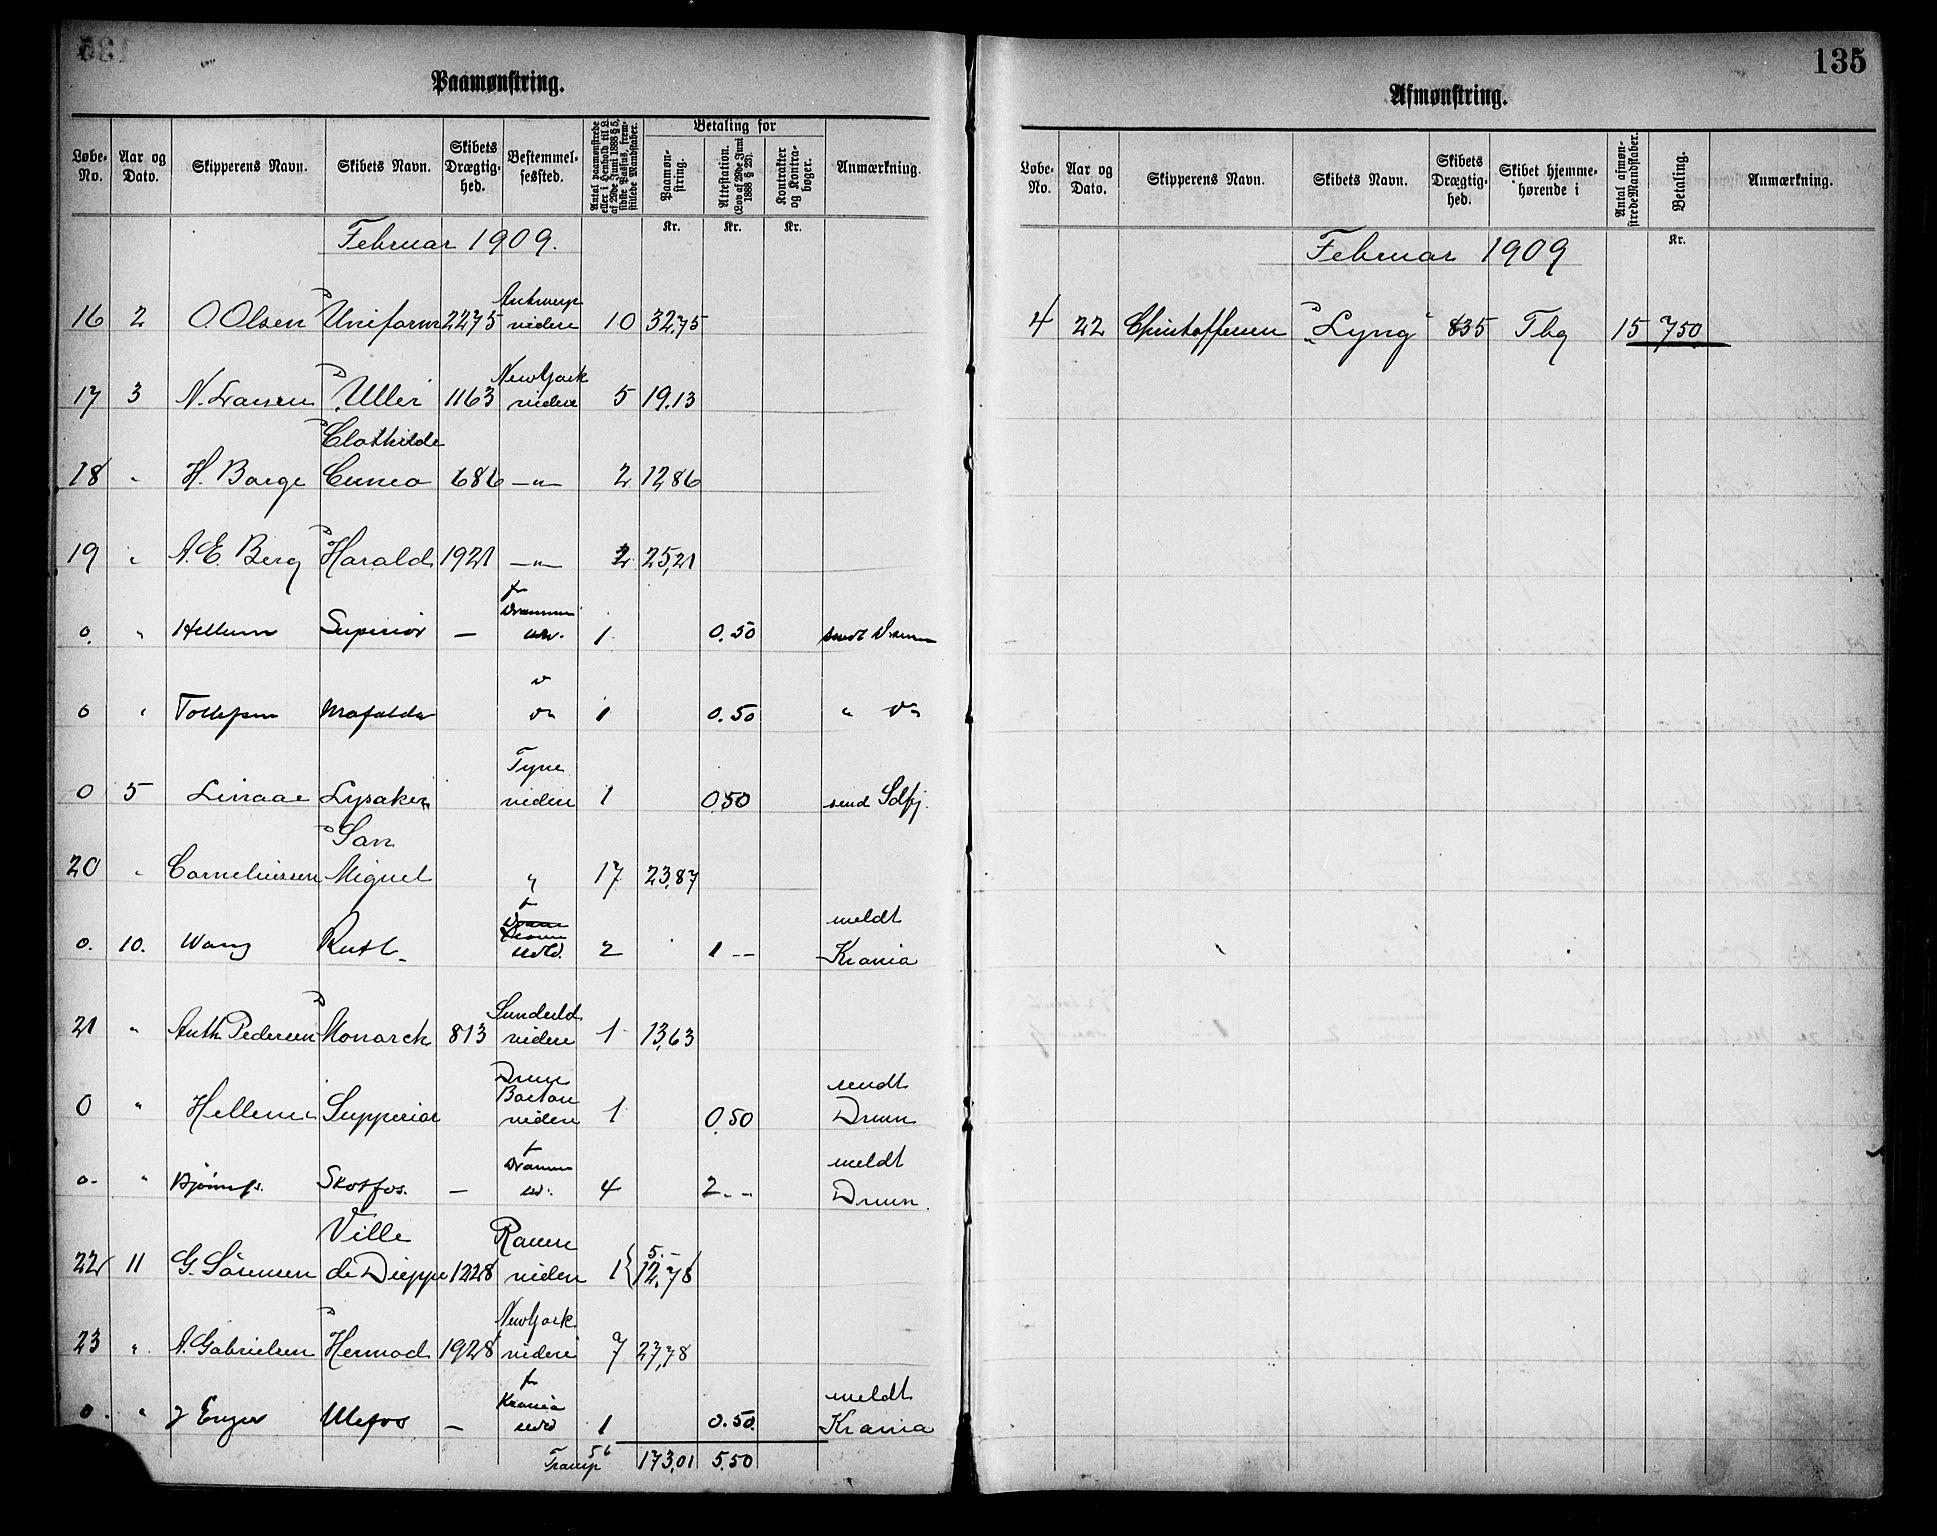 135
Paamønstring.
Løbe-No. Aar og Dato. Skipperens Navn. Skibets Navn. Skibets Drægtighed. Bestemmelsessted. Antal paamønstrede eller i Henhold til L. af 29de Juni 1888 § 5, sidste Passus, fremstillede Mandskaber. Betaling for Paamønstring. Attestation. (Lov af 29de Juni 1888 § 29). Kontrakter og Kontrabøger. Anmærkning.
Kr. Kr. Kr.
Februar 1909.
16 2 O. Olsen Uniform 2275 Antwerp videre 10 32,75
17 3 N. Larsen Uller 1163 New York videre 5 19.13
18 " H. Borge Clothilde Cuneo 686 —"— 2 12,86
19 " A. E. Berg Harald 1921 —"— 2 25,21
0. " Hellum Superiør — fr Drammen udl. 1 0.50 sendt Dramm
0 " Tollefsen Mafalda 1 0.50 " Do
0 5 Linaae Lysaker Tyne videre 1 0,50 send Sdfj.
20 " Corneliussen San Miguel " 17 23,87
0. 10. Wang Ruth udld. 2 1 -- meldt Krania
21 " Anth. Pedersen Monarch 813 Sunderld videre 1 13,63
0 " Hellem Supperior Dmm Boston videre 1 0,50 sendt Dmen
0. " Bjørnss. Skotfos. — fr Dramm ud. 4 2 -- meldt Dmen
22 11 G. Sørensen Ville de Dieppe 1228 Rouen videre 1 5.- 12,78
23 " A. Gabrielsen Hermod 1928 New York videre 7 27,78
0. " J Enger Ulefos — fr Krania udld 1 0.50 meldt Krania
Transp 56 173,01 5,50
135
Afmønstring.
Løbe-No. Aar og Dato. Skipperens Navn. Skibets Navn. Skibets Drægtighed. Skibet hjemmehørende i Antal afmønstrede Mandskaber. Betaling. Anmærkning.
Kr.
Februar 1909
4 22 Christoffersen "Lyng" 835 Tbg 15 750